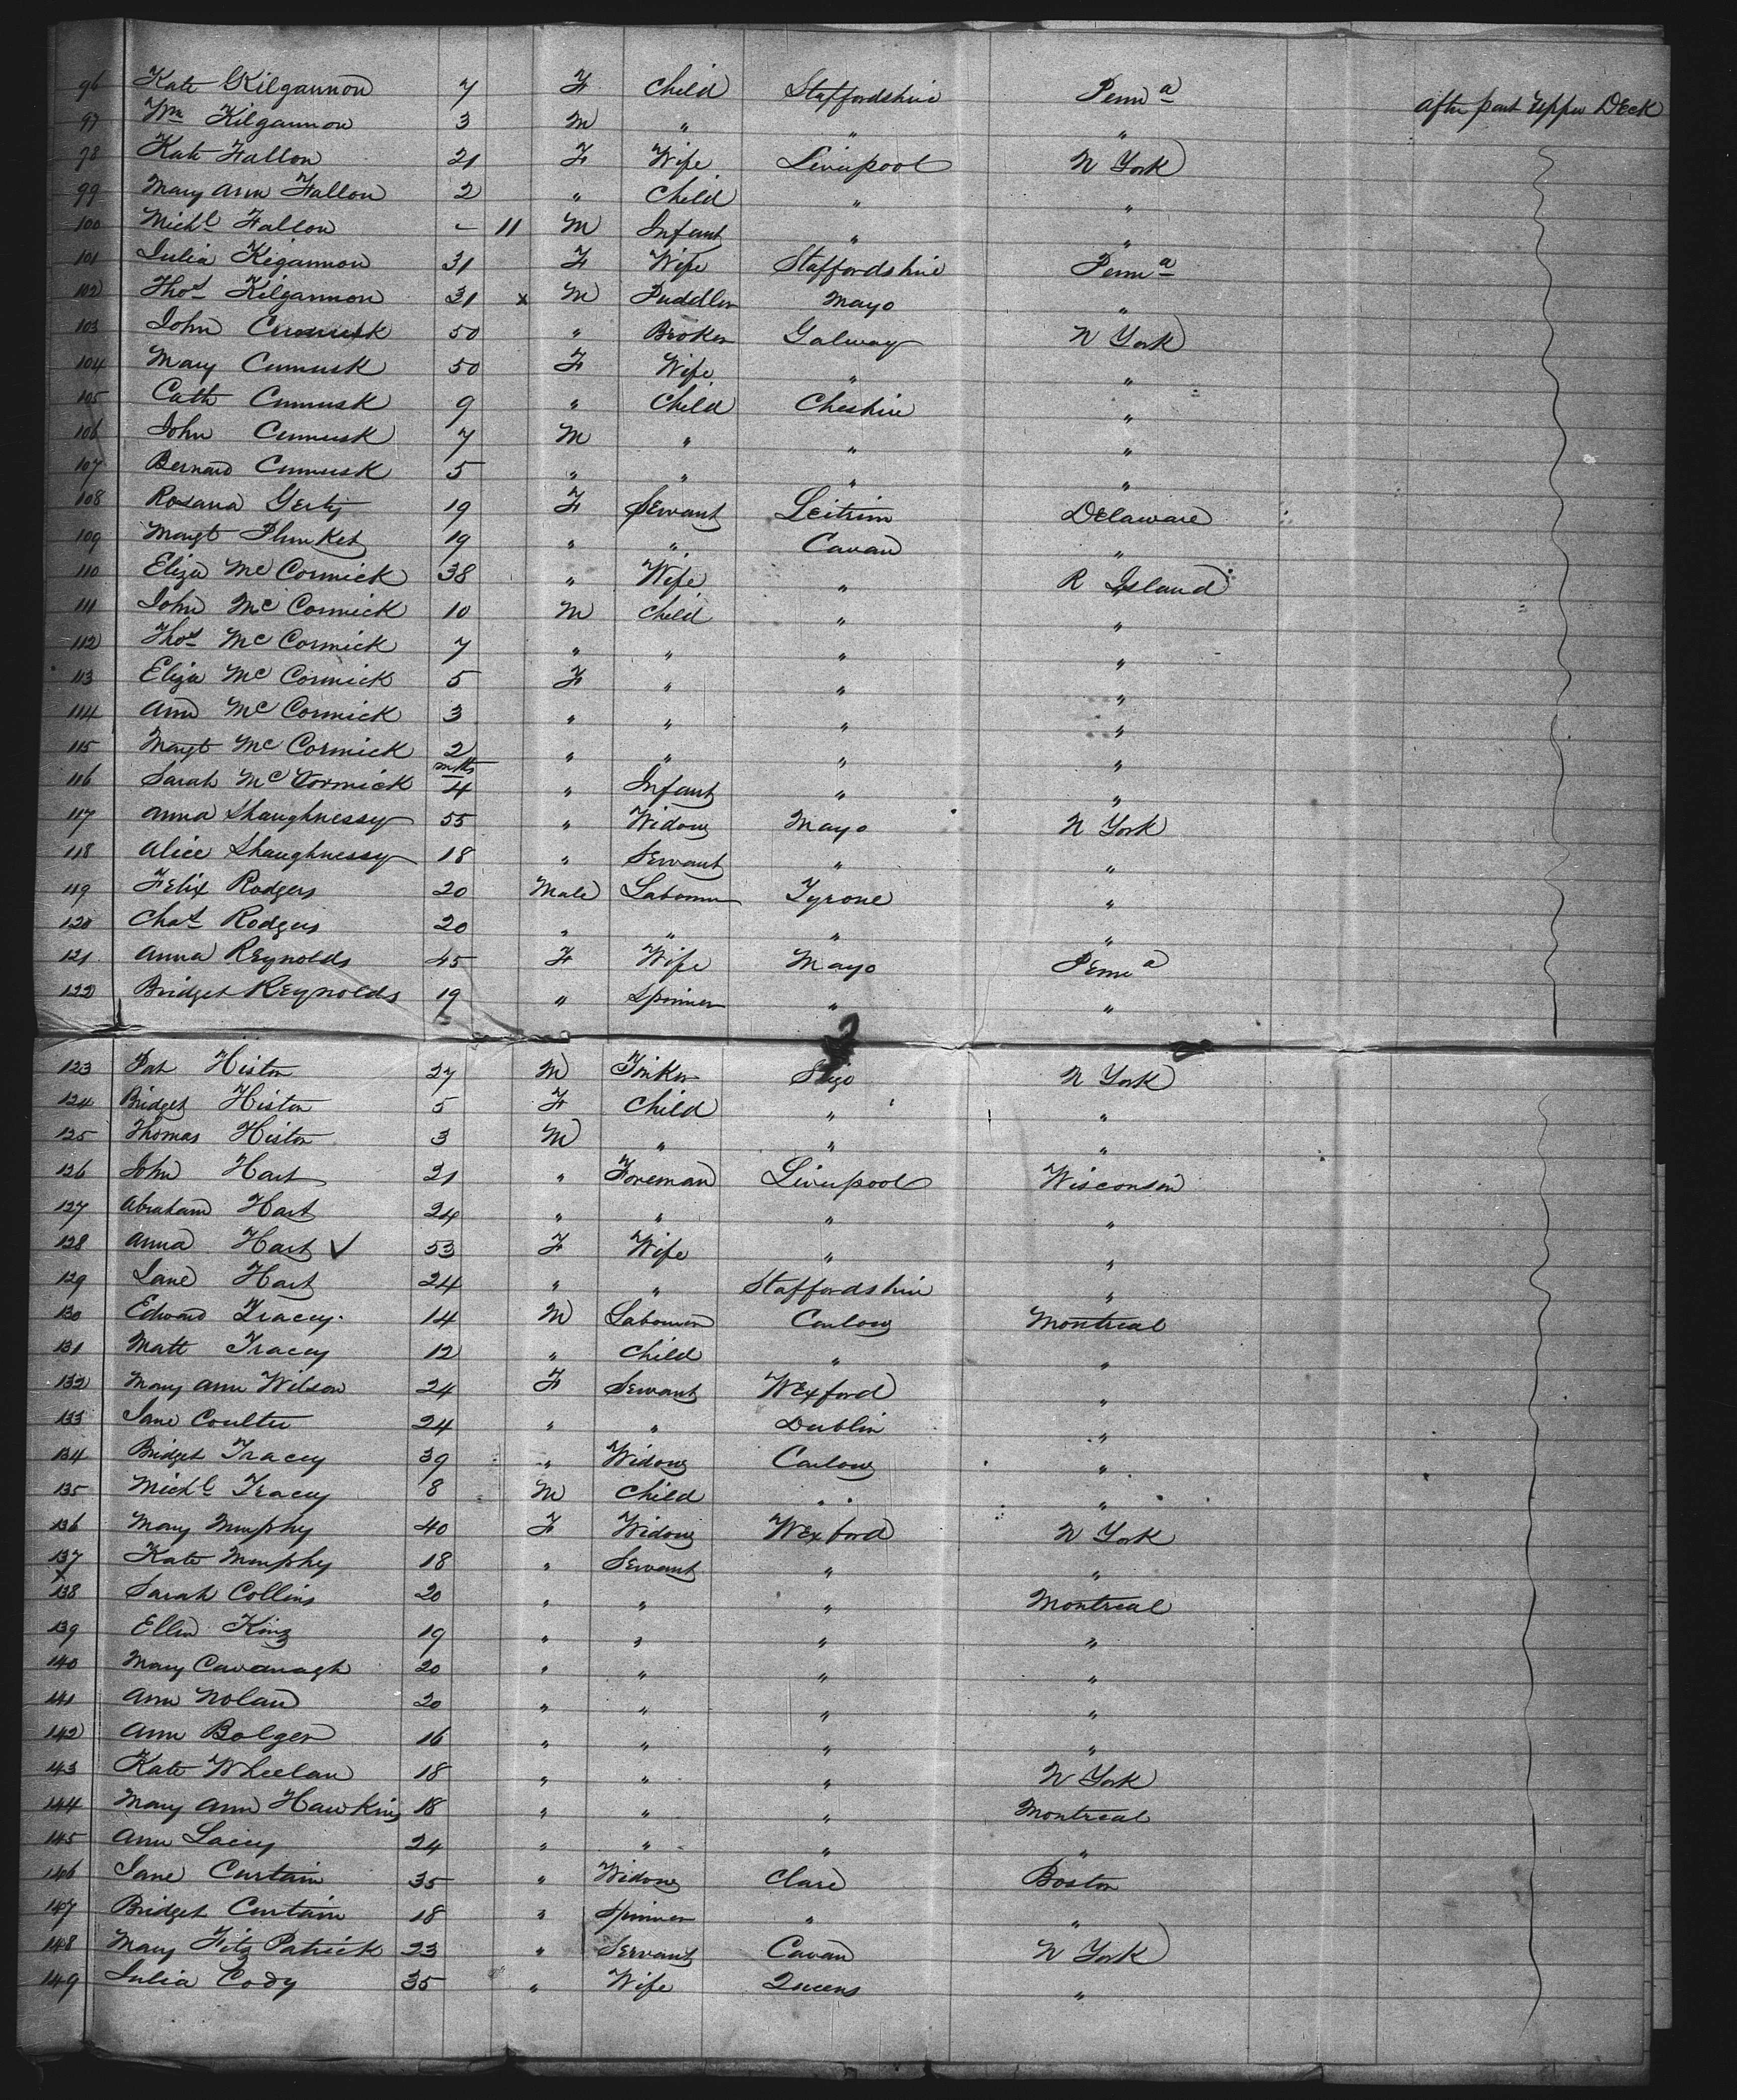 96 Kate Kilgannon 7 F Child Staffordshire Penna After part Upper Deck
97 Wm Kilgannon 3 M " " "
98 Kate Fallon 21 F Wife Liverpool N York
99 Mary Ann Fallon 2 " Child " "
100 Michl Fallon - 11 M Infant " "
101 Julia Kigannon 31 F Wife Staffordshire Penna
102 Thos Kilgannon 31 x M Puddler Mayo "
103 John 50 " Broker Galway N York
104 Mary Cumusk 50 F Wife " "
105 Cath Cumusk 9 " Child Cheshire "
106 John Cumusk 7 M " " "
107 Bernard Cumusk 5 " " " "
108 Roxana 19 F Servant Leitrim Delaware
109 Margt Plunket 19 " " Cavan "
110 Eliza McCormick 38 " Wife " R Island
111 John McCormick 10 M Child " "
112 Thos McCormick 7 " " " "
113 Eliza McCormick 5 F " " "
114 Ann McCormick 3 " " " "
115 Margt McCormick 2 " " " "
116 Sarah McCormick mths 4 " Infant " "
117 Anna Shaughnessy 55 " Widow Mayo N York
118 Alice Shaughnessy 18 " Servant " "
119 Felix Rodgers 20 Male Labourer Tyrone "
120 Chas Rodgers 20 " " " "
121 Anna Reynolds 45 F Wife Mayo Penna
122 Bridget Reynolds 19 " Spinner " "
123 Pat Histon 27 M Tinker Sligo N York
124 Bridget Histon 5 F Child " "
125 Thomas Histon 3 M " " "
126 John Hart 21 " Foreman Liverpool Wisconsin
127 Abraham Hart 24 " " " "
128 Anna Hart ✓ 53 F Wife " "
129 Jane Hart 24 " " Staffordshire "
130 Edward Tracey 14 M Labourer Carlow Montreal
131 Matt Tracey 12 " Child " "
132 Mary Ann Wilson 24 F Servant Wexford "
133 Jane Coulter 24 " " Dublin "
134 Bridget Tracey 39 " Widow Carlow "
135 Michl Tracey 8 M Child " "
136 Mary Murphy 40 F Widow Wexford N York
137 Kate Murphy 18 " Servant " "
x
138 Sarah Collins 20 " " " Montreal
139 Ellen King 19 " " " "
140 Mary Cavanagh 20 " " " "
141 Ann Nolan 20 " " " "
142 Ann Bolger 16 " " " "
143 Kate Wheelan 18 " " " N York
144 Mary Ann Hawkins 18 " " " Montreal
145 Ann Lacey 24 " " " "
146 Jane Curtain 35 " Widow Clare Boston
147 Bridget Curtain 18 " Spinner " "
148 Mary Fitz Patrick 23 " Servant Cavan N York
149 Julia Cody 35 " Wife Queens "